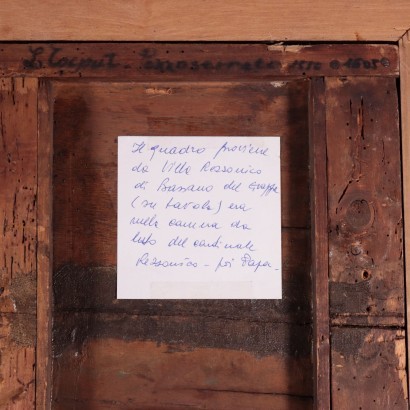 L. Toeput - Pozzoserrato 1550 @ 1605
Il quadro proviene
da Villa Rezzonico
di Bassano del Grappa
(su tavola) era
nella camera da
letto del cardinale
Rezzonico - poi Papa -